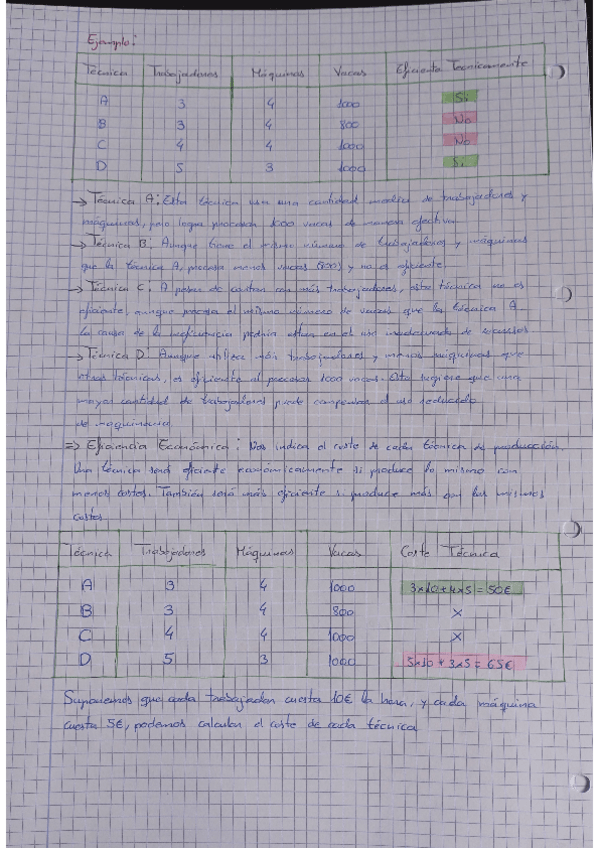 Ejemplo:
Técnica Trabajadores Máquinas Vacas Eficiente Tecnicamente
A 3 4 1000 Si
B 3 4 800 No
C 4 4 1000 No
D 5 3 1000 Si
→ Técnica A: Esta técnica usa una cantidad media de trabajadores y
máquinas, pero logra procesar 1000 vacas de manera efectiva.
→ Técnica B: Aunque tiene el mismo número de trabajadores y máquinas
que la técnica A, procesa menos vacas (800) y no es eficiente.
→ Técnica C: A pesar de contar con más trabajadores, esta técnica no es
eficiente, aunque procesa el mismo número de vacas que la técnica A
La causa de la ineficiencia podría estar en el uso inadecuado de recursos
→ Técnica D: Aunque utiliza más trabajadores y menos máquinas que
otras técnicas, es eficiente al procesar 1000 vacas. Esto sugiere que una
mayor cantidad de trabajadores puede compensar el uso reducido
de maquinaria
⇒ Eficiencia Económica: Nos indica el coste de cada técnica de producción.
Una técnica será eficiente económicamente si produce lo mismo con
menos costes. También será más eficiente si produce más con los mismos
costes
Técnica Trabajadores Máquinas Vacas Coste Técnica
A 3 4 1000 3x10+4x5=50€
B 3 4 800 x
C 4 4 1000 x
D 5 3 1000 5x10+3x5=65€
Suponemos que cada trabajador cuesta 10€ la hora, y cada máquina
cuesta 5€, podemos calcular el coste de cada técnica